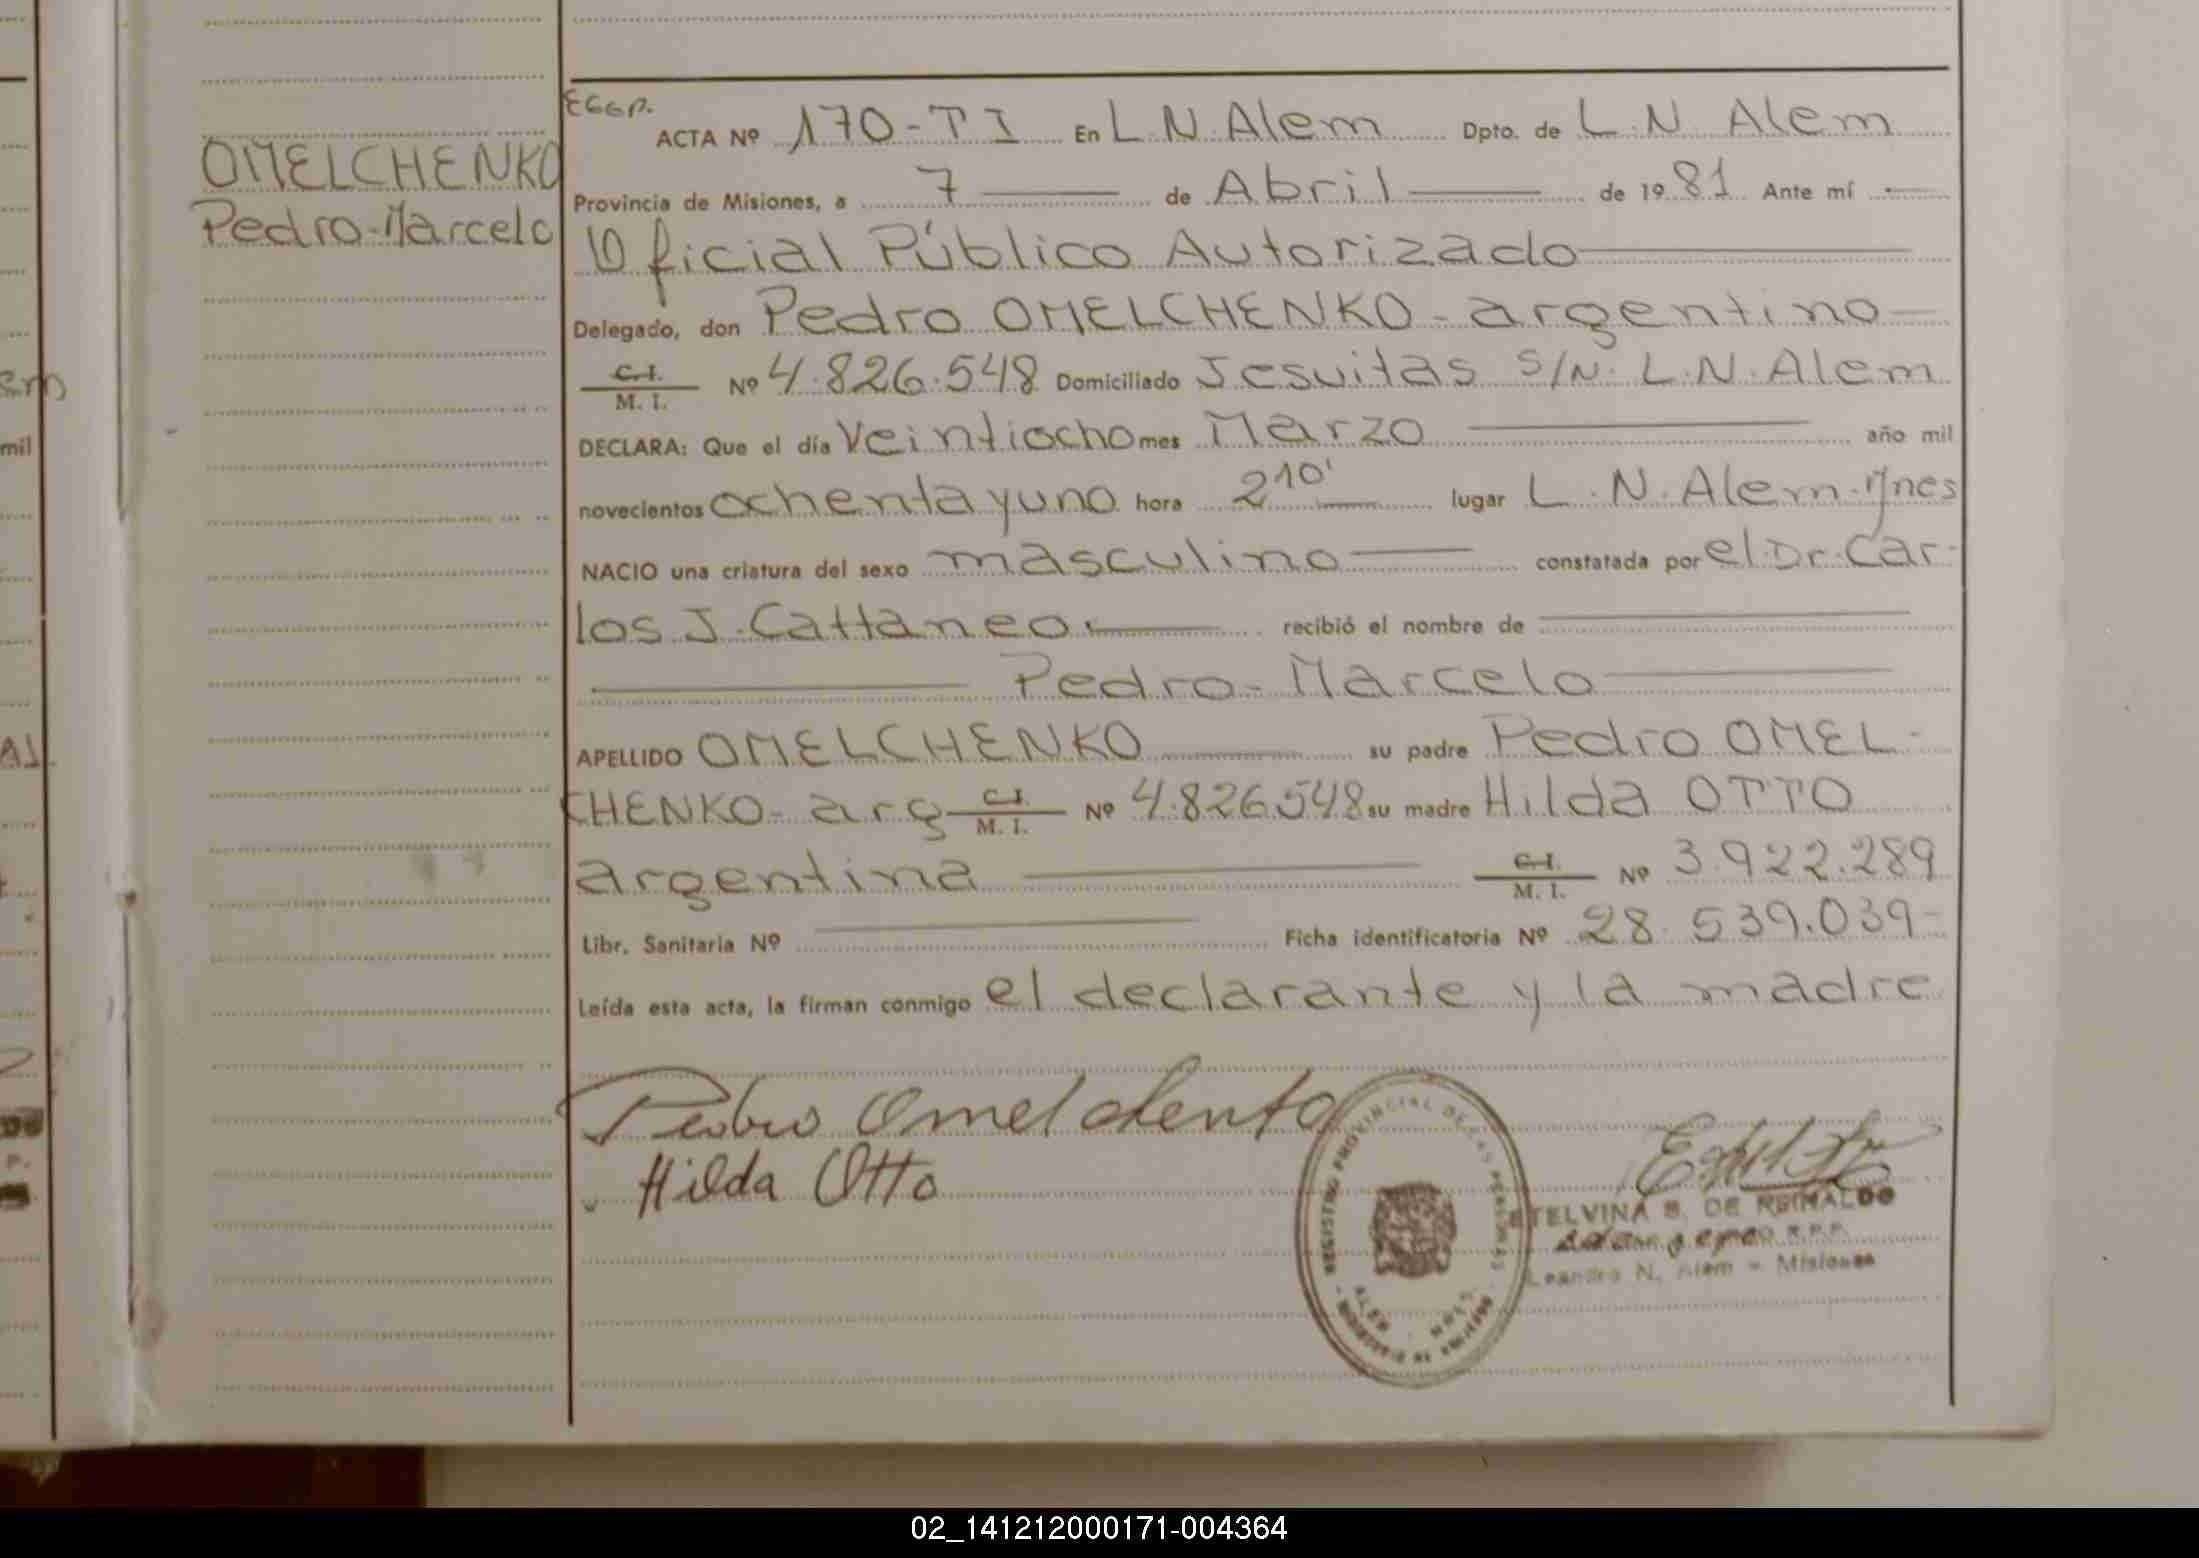 OMELCHENKO
Pedro-Marcelo
ACTA Nº 170-TI En L.N.Alem Dpto. de L.N. Alem
Provincia de Misiones, a 7 de Abril de 1981 Ante mí
Oficial Público Autorizado
Delegado, don Pedro OMELCHENKO - argentino
C.I. M.I. Nº 4.826.548 Domiciliado Jesuitas S/N. L.N.Alem
DECLARA: Que el día Veintiocho mes Marzo año mil
novecientos ochenta y uno hora 2 10' lugar L.N.Alem-Mnes
NACIO una criatura del sexo masculino constatada por el Dr. Car-
los J. Cattaneo. recibió el nombre de
Pedro-Marcelo
APELLIDO OMELCHENKO su padre Pedro OMEL-
CHENKO- arg C.I. M.I. Nº 4.826.548 su madre Hilda OTTO
argentina C.I. M.I. Nº 3.922.289
Libr. Sanitaria Nº Ficha identificatoria Nº 28.539.039-
Leída esta acta, la firman conmigo el declarante y la madre
Pedro Omelchenko
Hilda Otto
REGISTRO PROVINCIAL DE LAS PERSONAS
ALEM - MNES.
PROVINCIA DE MISIONES
ESTELVINA S. DE REINALDO
R.P.P.
Leandro N. Alem - Misiones
mil
02_141212000171-004364